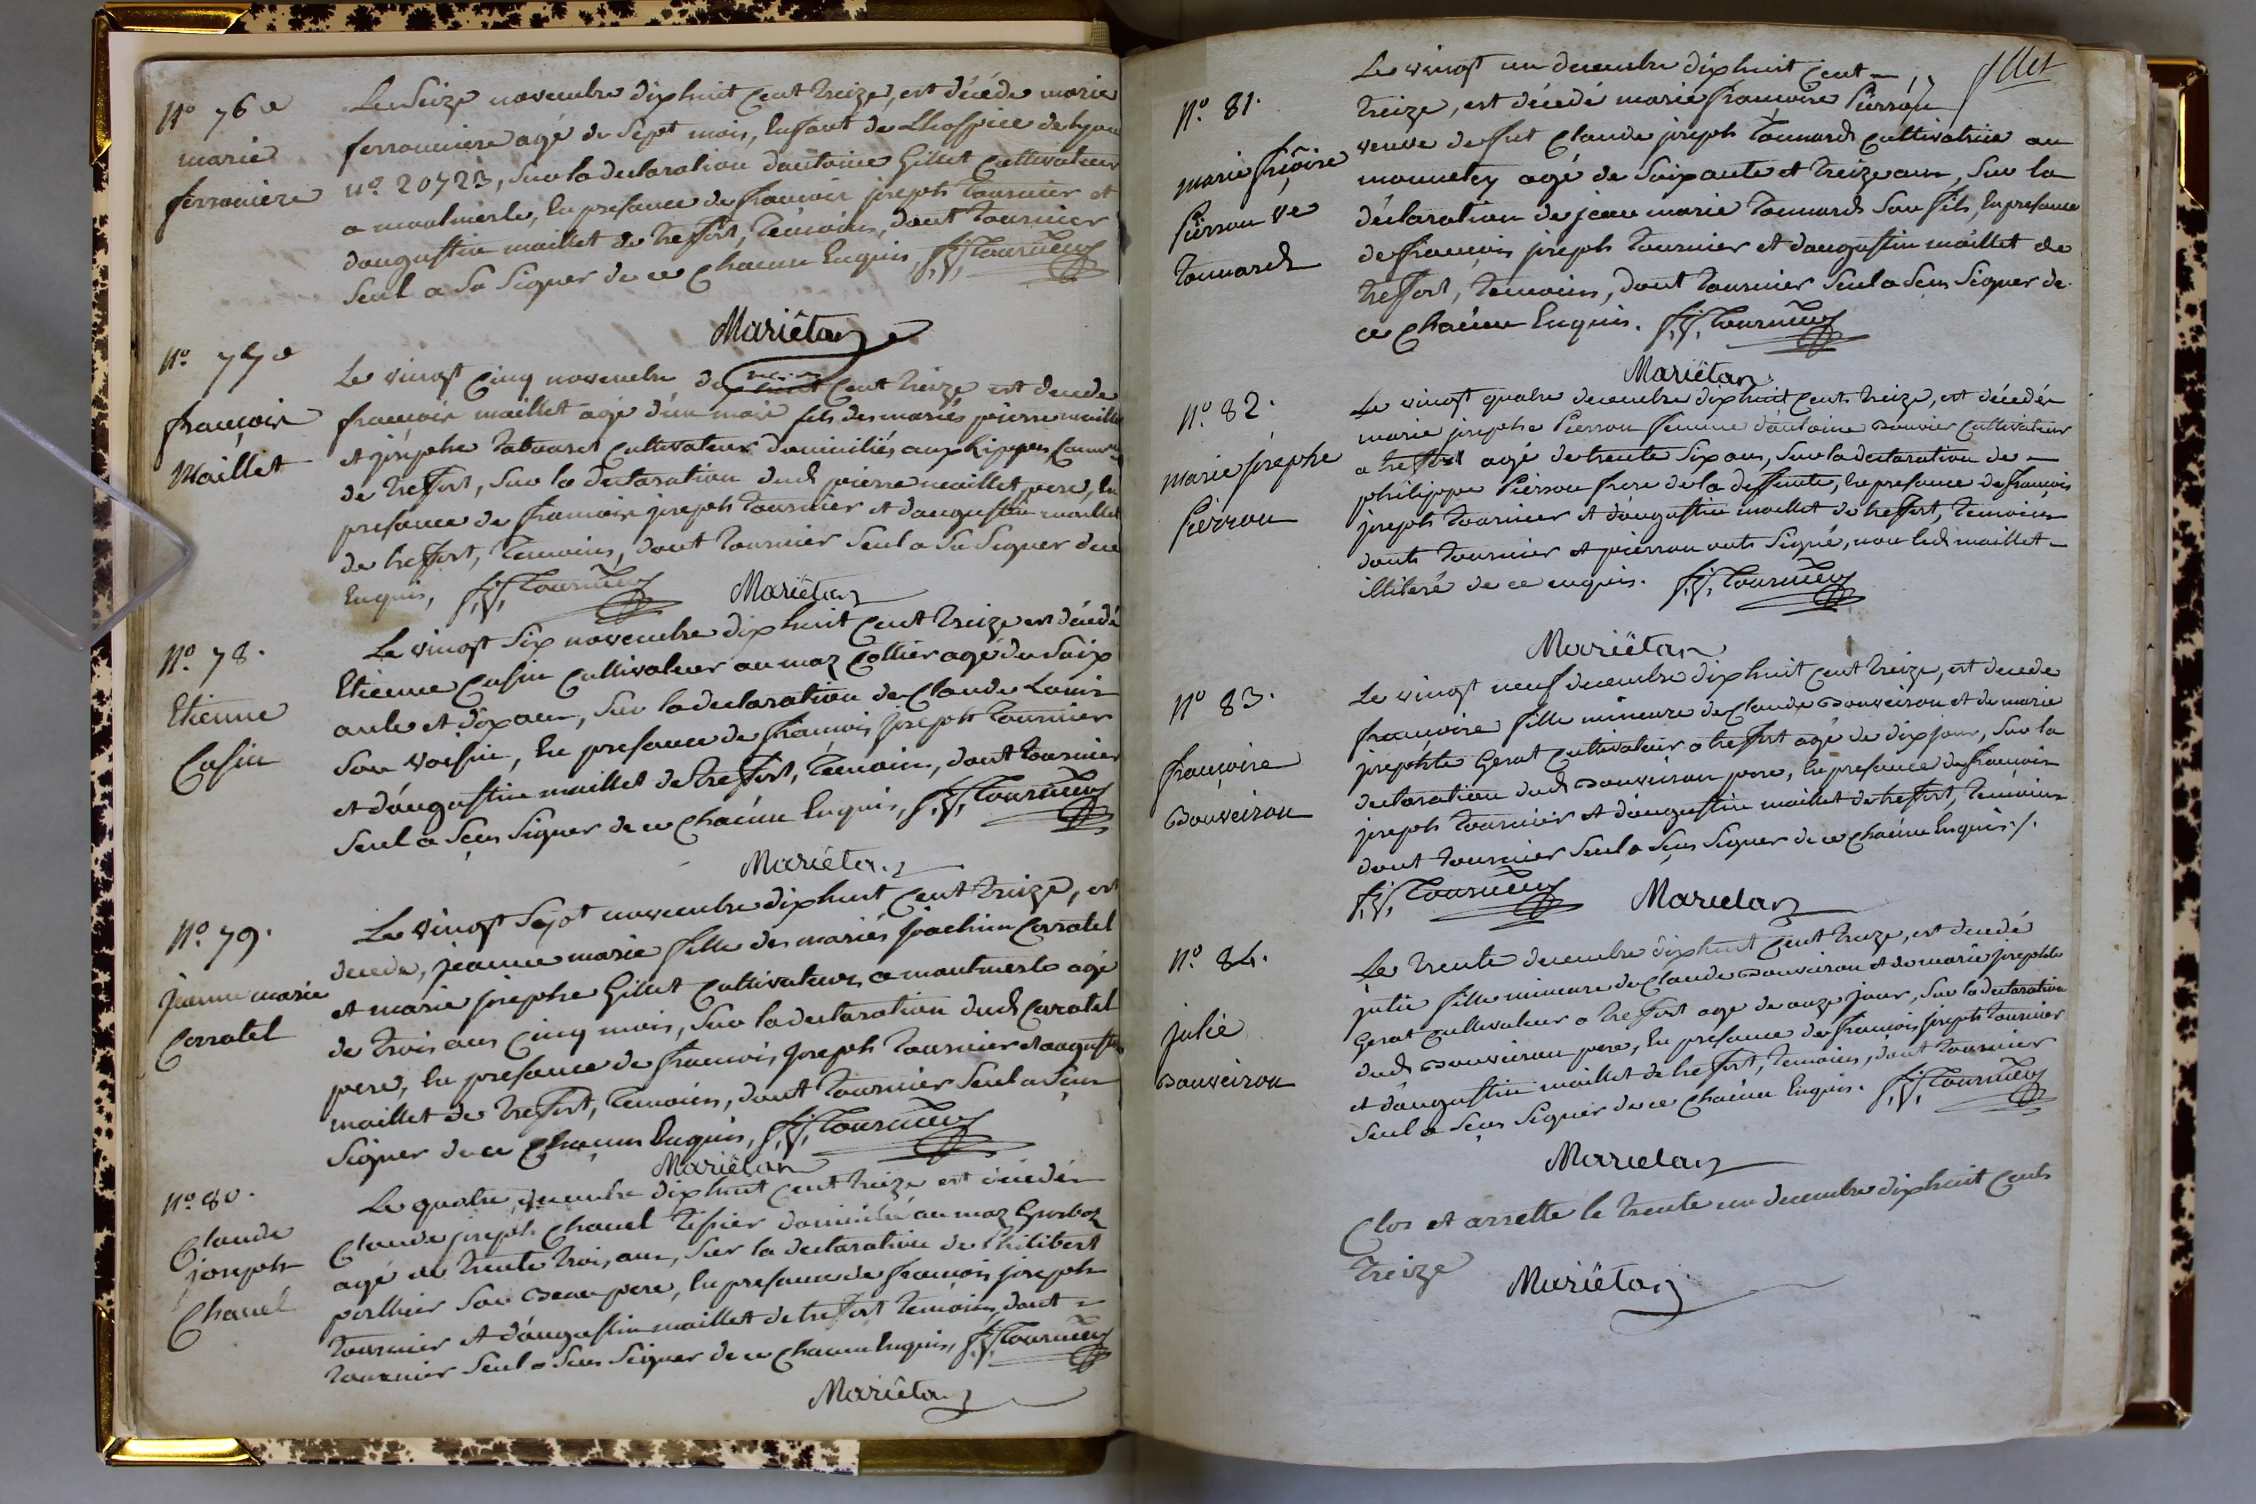 N.º 76e
marie
ferroniere
Le Seize novembre dix huit Cent treize, est décédé marie
ferronniere agé de Sept mois, Enfant de Lhospice de Lyon
nº. 20723, Sur la declaration dantoine Gillet Cultivateur
a montmerle, En presence de françois joseph tournier et
daugustin maillet de treffort, temoins, dont tournier
Seul a Su Signer de ce Chacun Enquis, f,j, Tournier
Mariêtan
N.º 77e
françois
Maillet
Le vingt Cinq novembre dix huit Cent treize est decede
françois maillet agé d'un mois fils des mariés pierre maillet
et josephe tabouret Cultivateurs domiciliés aux Lippes, Comune
de treffort, Sur la declaration dudt pierre maillet pere, En
presence de francois joseph tournier et daugustin maillet
de treffort, temoins, dont tournier Seul a Su Signer de ce
Enquis, f,j, Tournier
Mariêtan
N.º 78.
Etienne
Cusin
Le vingt Six novembre dix huit Cent treize est décédé
Etienne Cusin Cultivateur au maz Collier agé de Soix
ante et dix ans, Sur la declaration de Claude Louis
Son Voisin, En presence de francois Joseph tournier
et d'augustin maillet de treffort, temoins, dont tournier
Seul a Sçeu Signer de ce Chacun Enquis, f,j, Tournier
Mariétan
N.º 79.
Jeanne marie
Corratel
Le Vingt Sept novembre dix huit Cent treize, est
decede, jeanne marie fille des mariés Joachim Corratel
et marie josephe Gillet Cultivateurs a montmerle agé
de trois ans Cinq mois, Sur la declaration dudt Corratel
pere, En presence de francois Joseph tournier et augustin
maillet de treffort, temoins, dont tournier Seul a Sceu
Signer de ce Chacun Enquis, f,j, Tournier
Mariêtan
N.º 80.
Claude
joseph
Chanel
Le quatre decembre dix huit Cent treize est décédé
Claude joseph Chanel tissier domicilié au maz
agé de trente trois ans, Sur la declaration de Philibert
Son Beau pere, En presence de francois joseph
tournier et d'augustin maillet de treffort temoins, dont
tournier Seul a Sceu Signer de ce Chacun Enquis, f,j, Tournier
Mariêtan
N.º 81.
marie fçoise
Pierron Ve
tonnard
Le vingt un decembre dix huit Cent
treize, est décedé marie francoise Pierron
veuve de fut Claude joseph tonnard Cultivatrice au
monnetey agé de Soixante et treize ans, Sur la
déclaration de jean marie tonnard Son fils, En presence
de françois joseph tournier et daugustin maillet de
treffort, temoins, dont tournier Seul a Sceu Signer de
ce Chacun Enquis. f,j, Tournier
Mariétan
N.º 82.
Marie josephe
Pierron
Le vingt quatre decembre dix huit Cent treize, est décédée
marie josephe Pierron femme d'antoine Bouvier Cultivateur
a treffort agé de trente Six ans, Sur la declaration de
philippe Pierron frere de la deffunte, En presence de francois
joseph tournier et d'augustin maillet de treffort, temoins
dont tournier et pierron ont Signé, non ledt maillet
illiteré de ce enquis. f,j, Tournier
Mariêtan
N.º 83.
françoise
Bouveiron
Le vingt neuf decembre dix huit Cent treize, est decede
françoise fille mineure de Claude Bouveiron et de marie
josephte Gerat Cultivateur a treffort agé de dix jour, Sur la
declaration dudt Bouveiron pere, En presence de francois
joseph tournier et d'augustin maillet de treffort, temoins
dont tournier Seul a Sceu Signer de ce Chacun Enquis./.
f,j, Tournier Marietan
N.º 84.
Julie
Bouveiron
Le trente decembre dix huit Cent treize, est decedé
julie fille mineure de Claude Bouveiron et de marie josephte
Gerat Cultivateur a treffort agé de onze jour, Sur la declaration
dudt Bouveiron pere, En presence de francois joseph tournier
et d'augustin maillet de treffort, temoins, dont tournier
Seul a Sceu Signer de ce Chacun Enquis. f,j, Tournier
Marietan
Clos et arretté le trente un decembre dix huit Cent
treize Mariétan